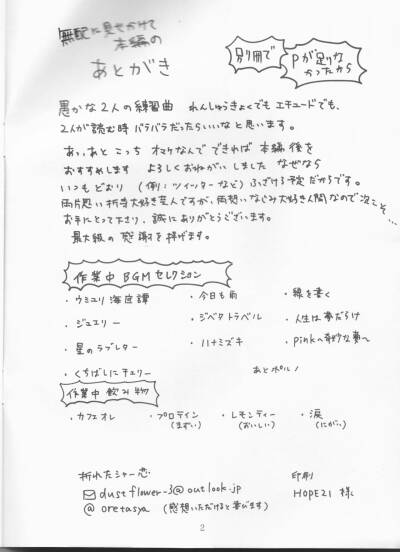 無配に見せかけて
本編の
あとがき
別冊で
Pが足りな
かったから
愚かな2人の練習曲 れんしゅうきょくでもエチュードでも、
2人が読む時バラバラだったらいいなと思います。
あっ、あと こっち オマケなんで できれば 本編後を
おすすめします よろしくおねがいしました なぜなら
いつもどおり (例:ツイッターなど) ふざける予定だからです。
両片思い折寺大好き芸人ですが、両想いなじみ大好き人間なので次こそ…
お手にとって下さり、誠にありがとうございます。
最大級の感謝を捧げます。
作業中BGMセレクション
・ウミユリ海底譚 ・今日も雨 ・線を書く
・ジュエリー ・ジベタトラベル ・人生は夢だらけ
・星のラブレター ・ハナミズキ ・pinkへ奇妙な夢へ
・くちばしにチェリー あとポルノ
作業中飲み物
・カフェオレ ・プロテイン(まずい) ・レモンティー(おいしい) ・涙(にがい)
折れたシャー芯 印刷
dustflower-3@outlook.jp HOPE21 様
@oretasya (感想いただけると喜びます)
2